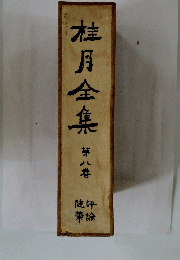 桂月全集
第八卷
評論
隨筆